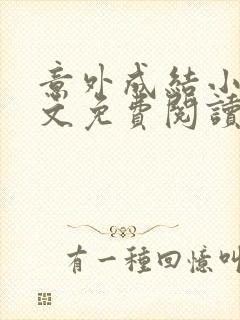 意外成結小
文免費閱讀
有一種回憶叫